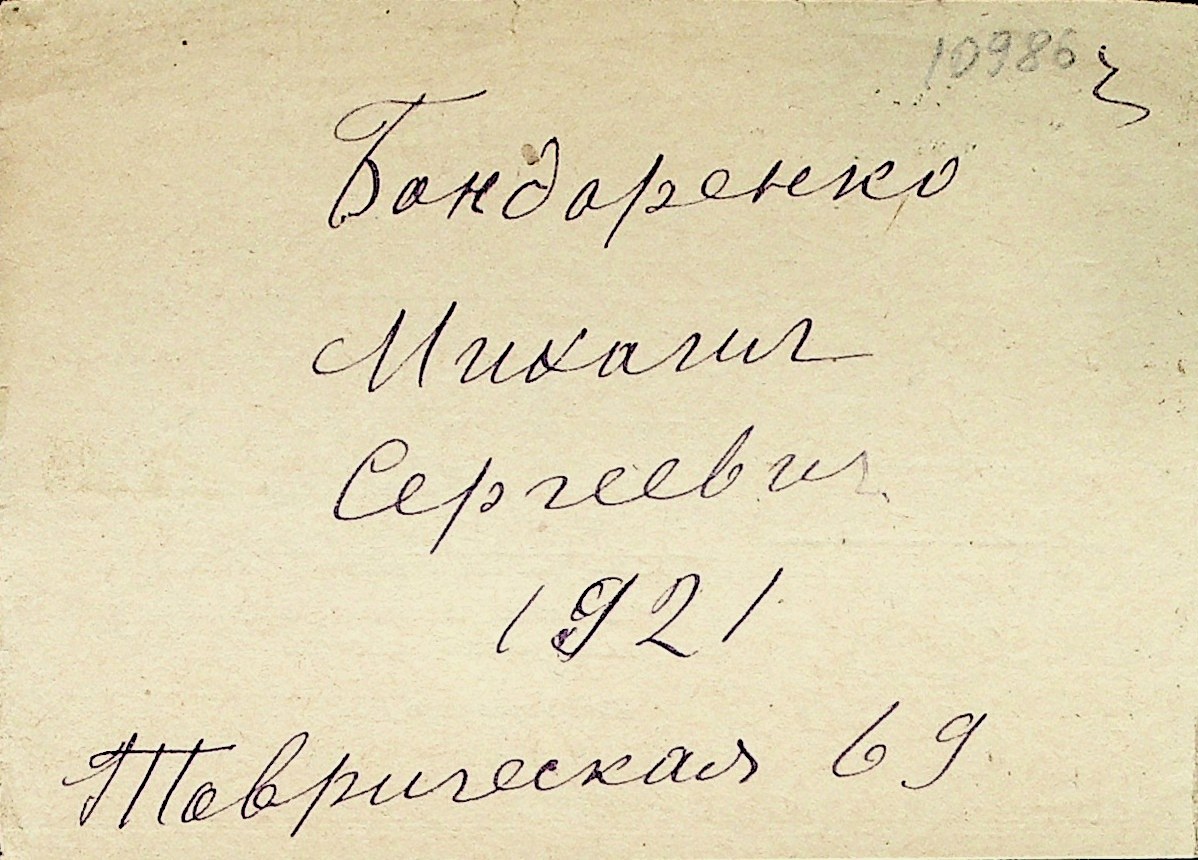 10986
Бондаренко
Михаил
Сергеевич
1921
Таврическая 69